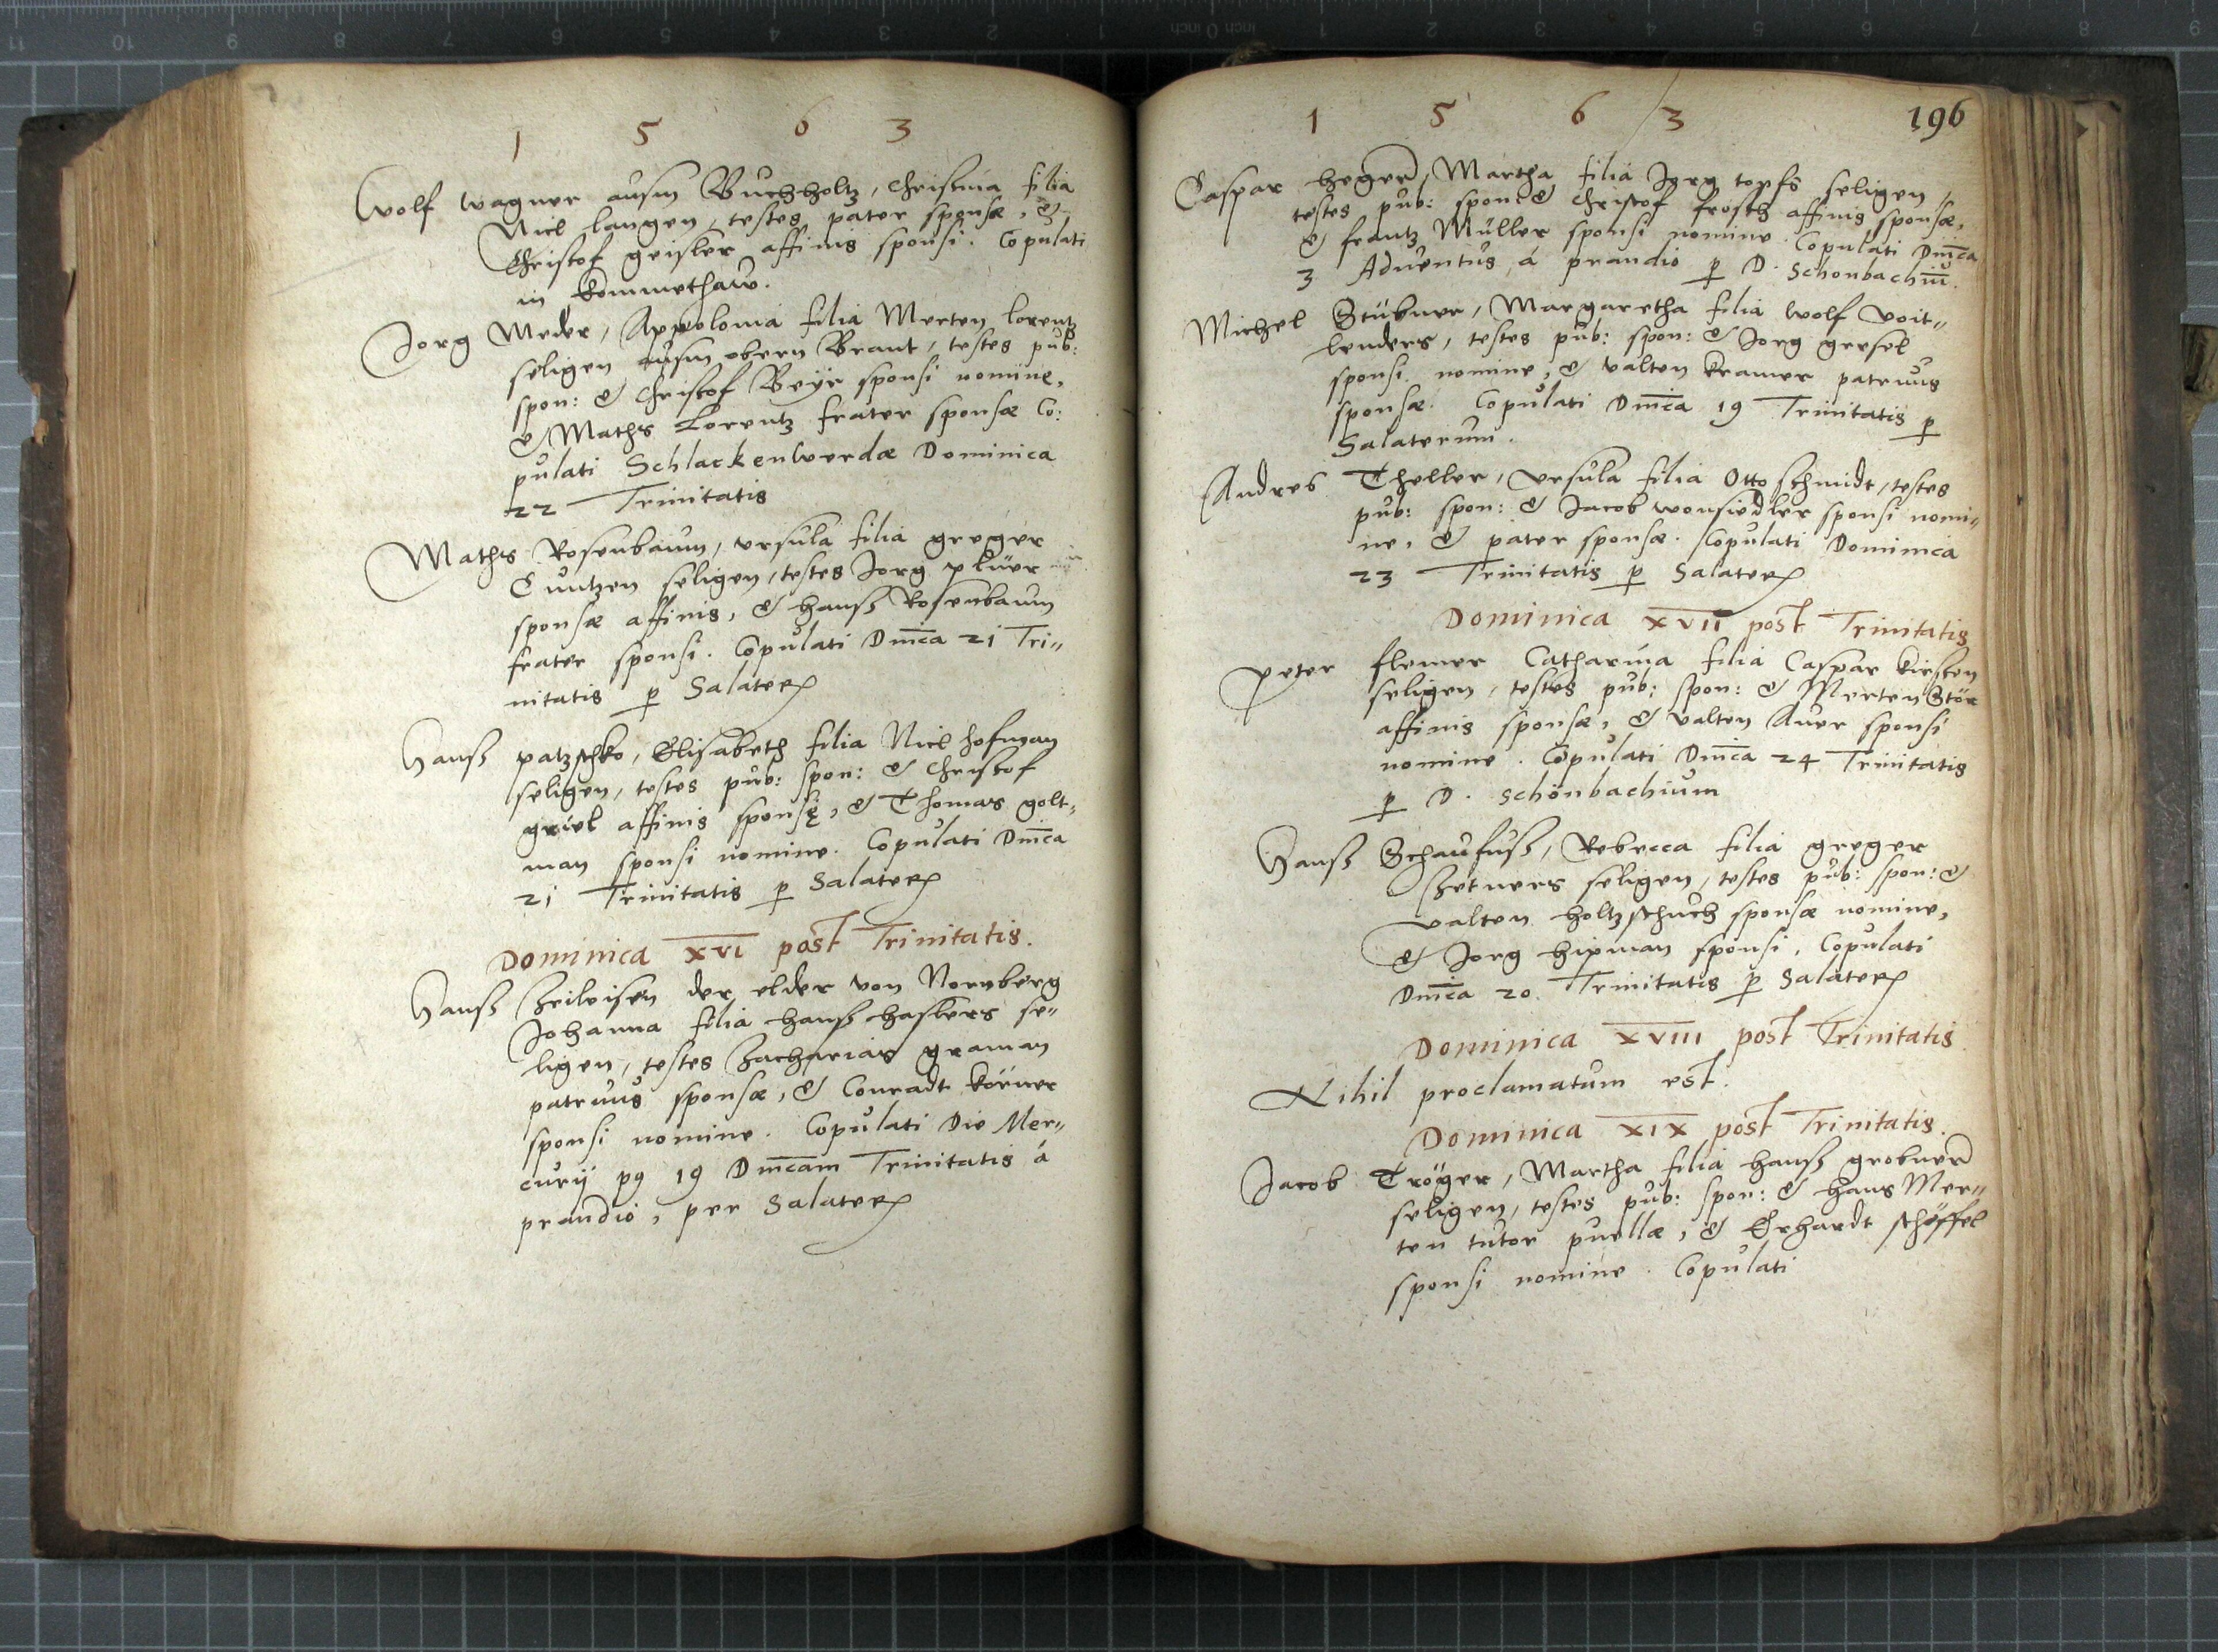 1 5 6 3
Wolf Wagner ausm Buchholtz, Christina filia
Nicl Langen, testes pater sponsæ, &
Christof Geisler affinis sponsi. Copulati
in Kommethaw.
Jorg Meder, Appolonia filia Merten Lorentz
seligen ausm obern Brant, testes pub:
spon: & Christof Beyr sponsi nomine,
& Maths Lorentz frater sponsæ Co:
pulati Schlackenwerdæ Dominica
22 Trinitatis
Maths Rosenbaum, Ursula filia Greger
Cuntzen seligen, testes Jorg pluer
sponsæ affinis, & Hanß Rosenbaum
frater sponsi. Copulati Dnica 21 Tri"
nitatis p Salater
Hanß patzschko, Elisabeth filia Nicl Hofman
seligen, testes pub: spon: & Christof
griel affinis sponsę, & Thomas Golt"
man sponsi nomine. Copulati Dnica
21 Trinitatis p Salater
Dominica XVI post Trinitatis.
Hanß Zeileisen der elder von Nornberg
Johanna filia Hanß Haslers se"
ligen, testes Zacharias graman
patruus sponsæ, & Conradt Körner
sponsi nomine. Copulati Die Mer"
curij p9 19 Dnicam Trinitatis á
prandio, per Salater
1 5 6 3
196
Caspar Heger, Martha filia Jorg topfs seligen,
testes pub: spon: & Christof frosch affinis sponsæ,
& frantz Müller sponsi nomine. Copulati Dnica
3 Adventus á prandio p D. Schonbachiu.
Michel Stübner, Margaretha filia Wolf Voit"
lenders, testes pub: spon: & Jorg gresel
sponsi nomine, & Valten Kramer patruus
sponsæ. Copulati Dnica 19 Trinitatis p
Salaterum.
Andres Theller, Ursula filia Otto Schmidt, testes
pub: spon: & Jacob Wonsiedler sponsi nomi"
ne, & pater sponsæ. Copulati Dominica
23 Trinitatis p Salater
Dominica XVII post Trinitatis
Peter flemer Catharina filia Caspar Kirsten
seligen, testes pub: spon: & Merten Stör
affinis sponsæ, & Valten Auer sponsi
nomine. Copulati Dnica 24 Trinitatis
p D. Schönbachium
Hanß Schaufuß, Rebecca filia Greger
Zetners seligen, testes pub: spon: &
Valten Holtzschuch sponsæ nomine,
& Jorg Hipman sponsi, Copulati
Dnica 20 Trinitatis p Salater
Dominica XVIII post Trinitatis
Nihil proclamatum est.
Dominica XIX post Trinitatis.
Jacob Tröger, Martha filia Hanß grobner
seligen, testes pub: spon: & Hans Mer"
ten tutor puellæ, & Erhardt schöffel
sponsi nomine. Copulati